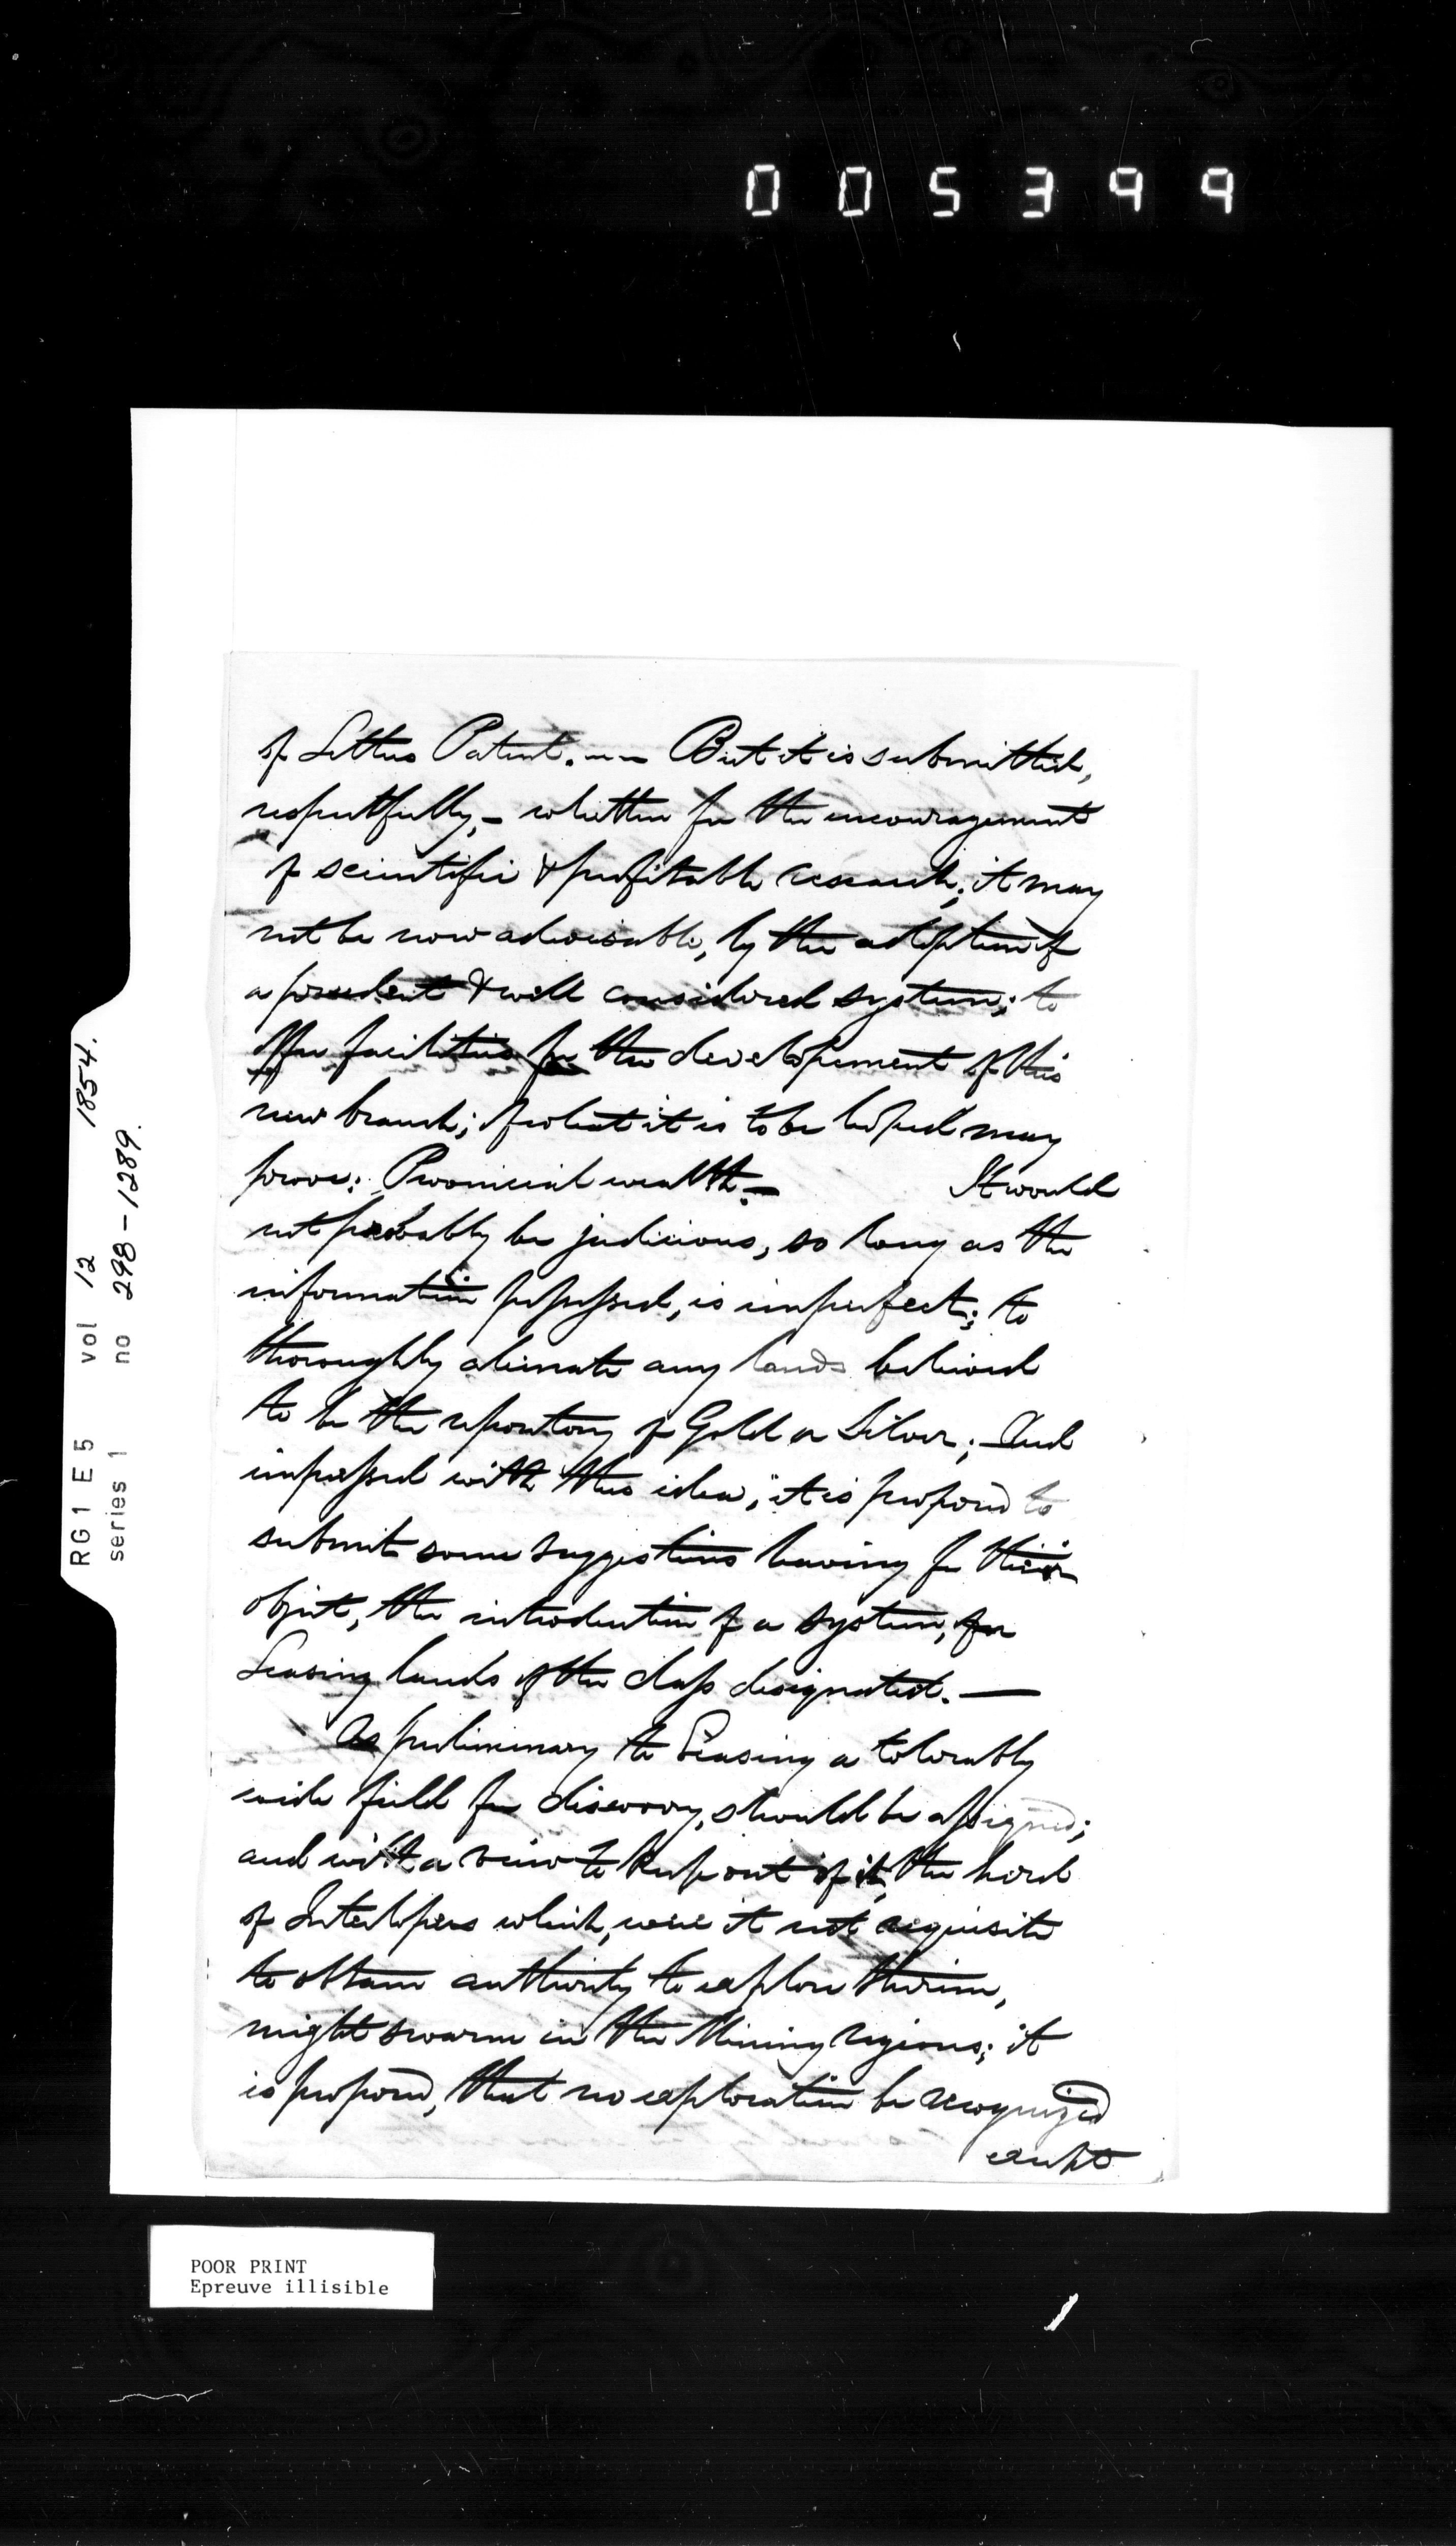 005399
RG1 E5 vol 12 1854.
series 1 no 298-1289.
of Letters Patent. But it is submitted,
respectfully, - whether for the encouragement
of scientific & profitable research; it may
not be now adviseable, by the adoption of
a prudent & well considered system; to
offer facilities for the developement of this
new branch; of what it is to be hoped may
prove: Provincial wealth. - It would
not probably be judicious, so long as the
information possessed, is imperfect; to
thoroughly alienate any lands believed
to be the repository of Gold or Silver; And
impressed with this idea, it is proposed to
submit some suggestions having for their
object, the introduction of a system, for
Leasing lands of the class designated. -
As preliminary to Leasing a tolerably
wide field for discovery, should be assigned;
and with a view to keep out of it, the horde
of Interlopers which, were it not requisite
to obtain authority to explore therein,
might swarm in the Mining regions; it
is proposed, that no exploration be recognized
except
POOR PRINT
Epreuve illisible